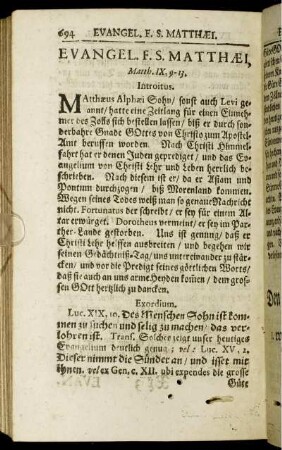 694 EVANGEL. F. S. MATTHÆI.
EVANGEL. F. S. MATTHÆI,
Matth. IX. 9-13.
Introitus.
MAtthæus Alphæi Sohn / sonst auch Levi ge-
nannt / hatte eine Zeitlang für einen Einneh-
mer des Zolls sich bestellen lassen / biß er durch son-
derbahre Gnade GOttes von Christo zum Apostel-
Amt beruffen worden. Nach Christi Himmel-
fahrt hat er denen Juden geprediget / und das Ev-
angelium von Christi Lehr und Leben herrlich be-
schrieben. Nach diesem ist er da er Asiam und
Pontum durchzogen / biß Morenland kommen.
Wegen seines Todes weiß man so genaue Nachricht
nicht. Fortunatus der schreibt / er sey für einem Al-
tar erwürget. Dorotheus vermeint / er sey im Par-
ther-Lande gestorben. Uns ist genung / daß er
Christi Lehr helffen ausbreiten / und begehen wir
seinen Gedächtniß-Tag / uns untereinander zu stär-
cken / und vor die Predigt seines göttlichen Worts /
daß sie auch an uns arme Heyden kommen / dem gros-
sen GOtt hertzlich zu dancken.
Exordium.
Luc. XIX, 10. Des Menschen Sohn ist kom-
men zu suchen und selig zu machen / das ver-
lohren ist. Trans. Solches zeigt unser heutiges
Evangelium deutlich genug; vel: Luc. XV, 2.
Dieser nimmt die Sünder an / und isset mit
ihnen. vel ex Gen. c. XII. ubi expendes die grosse
Güte